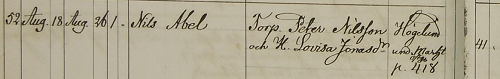 52 Aug. 18 Aug. 26 1 - Nils Abel Torp. Peter Nilsson Höglund
och H. Lovisa Jonasdr und. 
p. 418 41